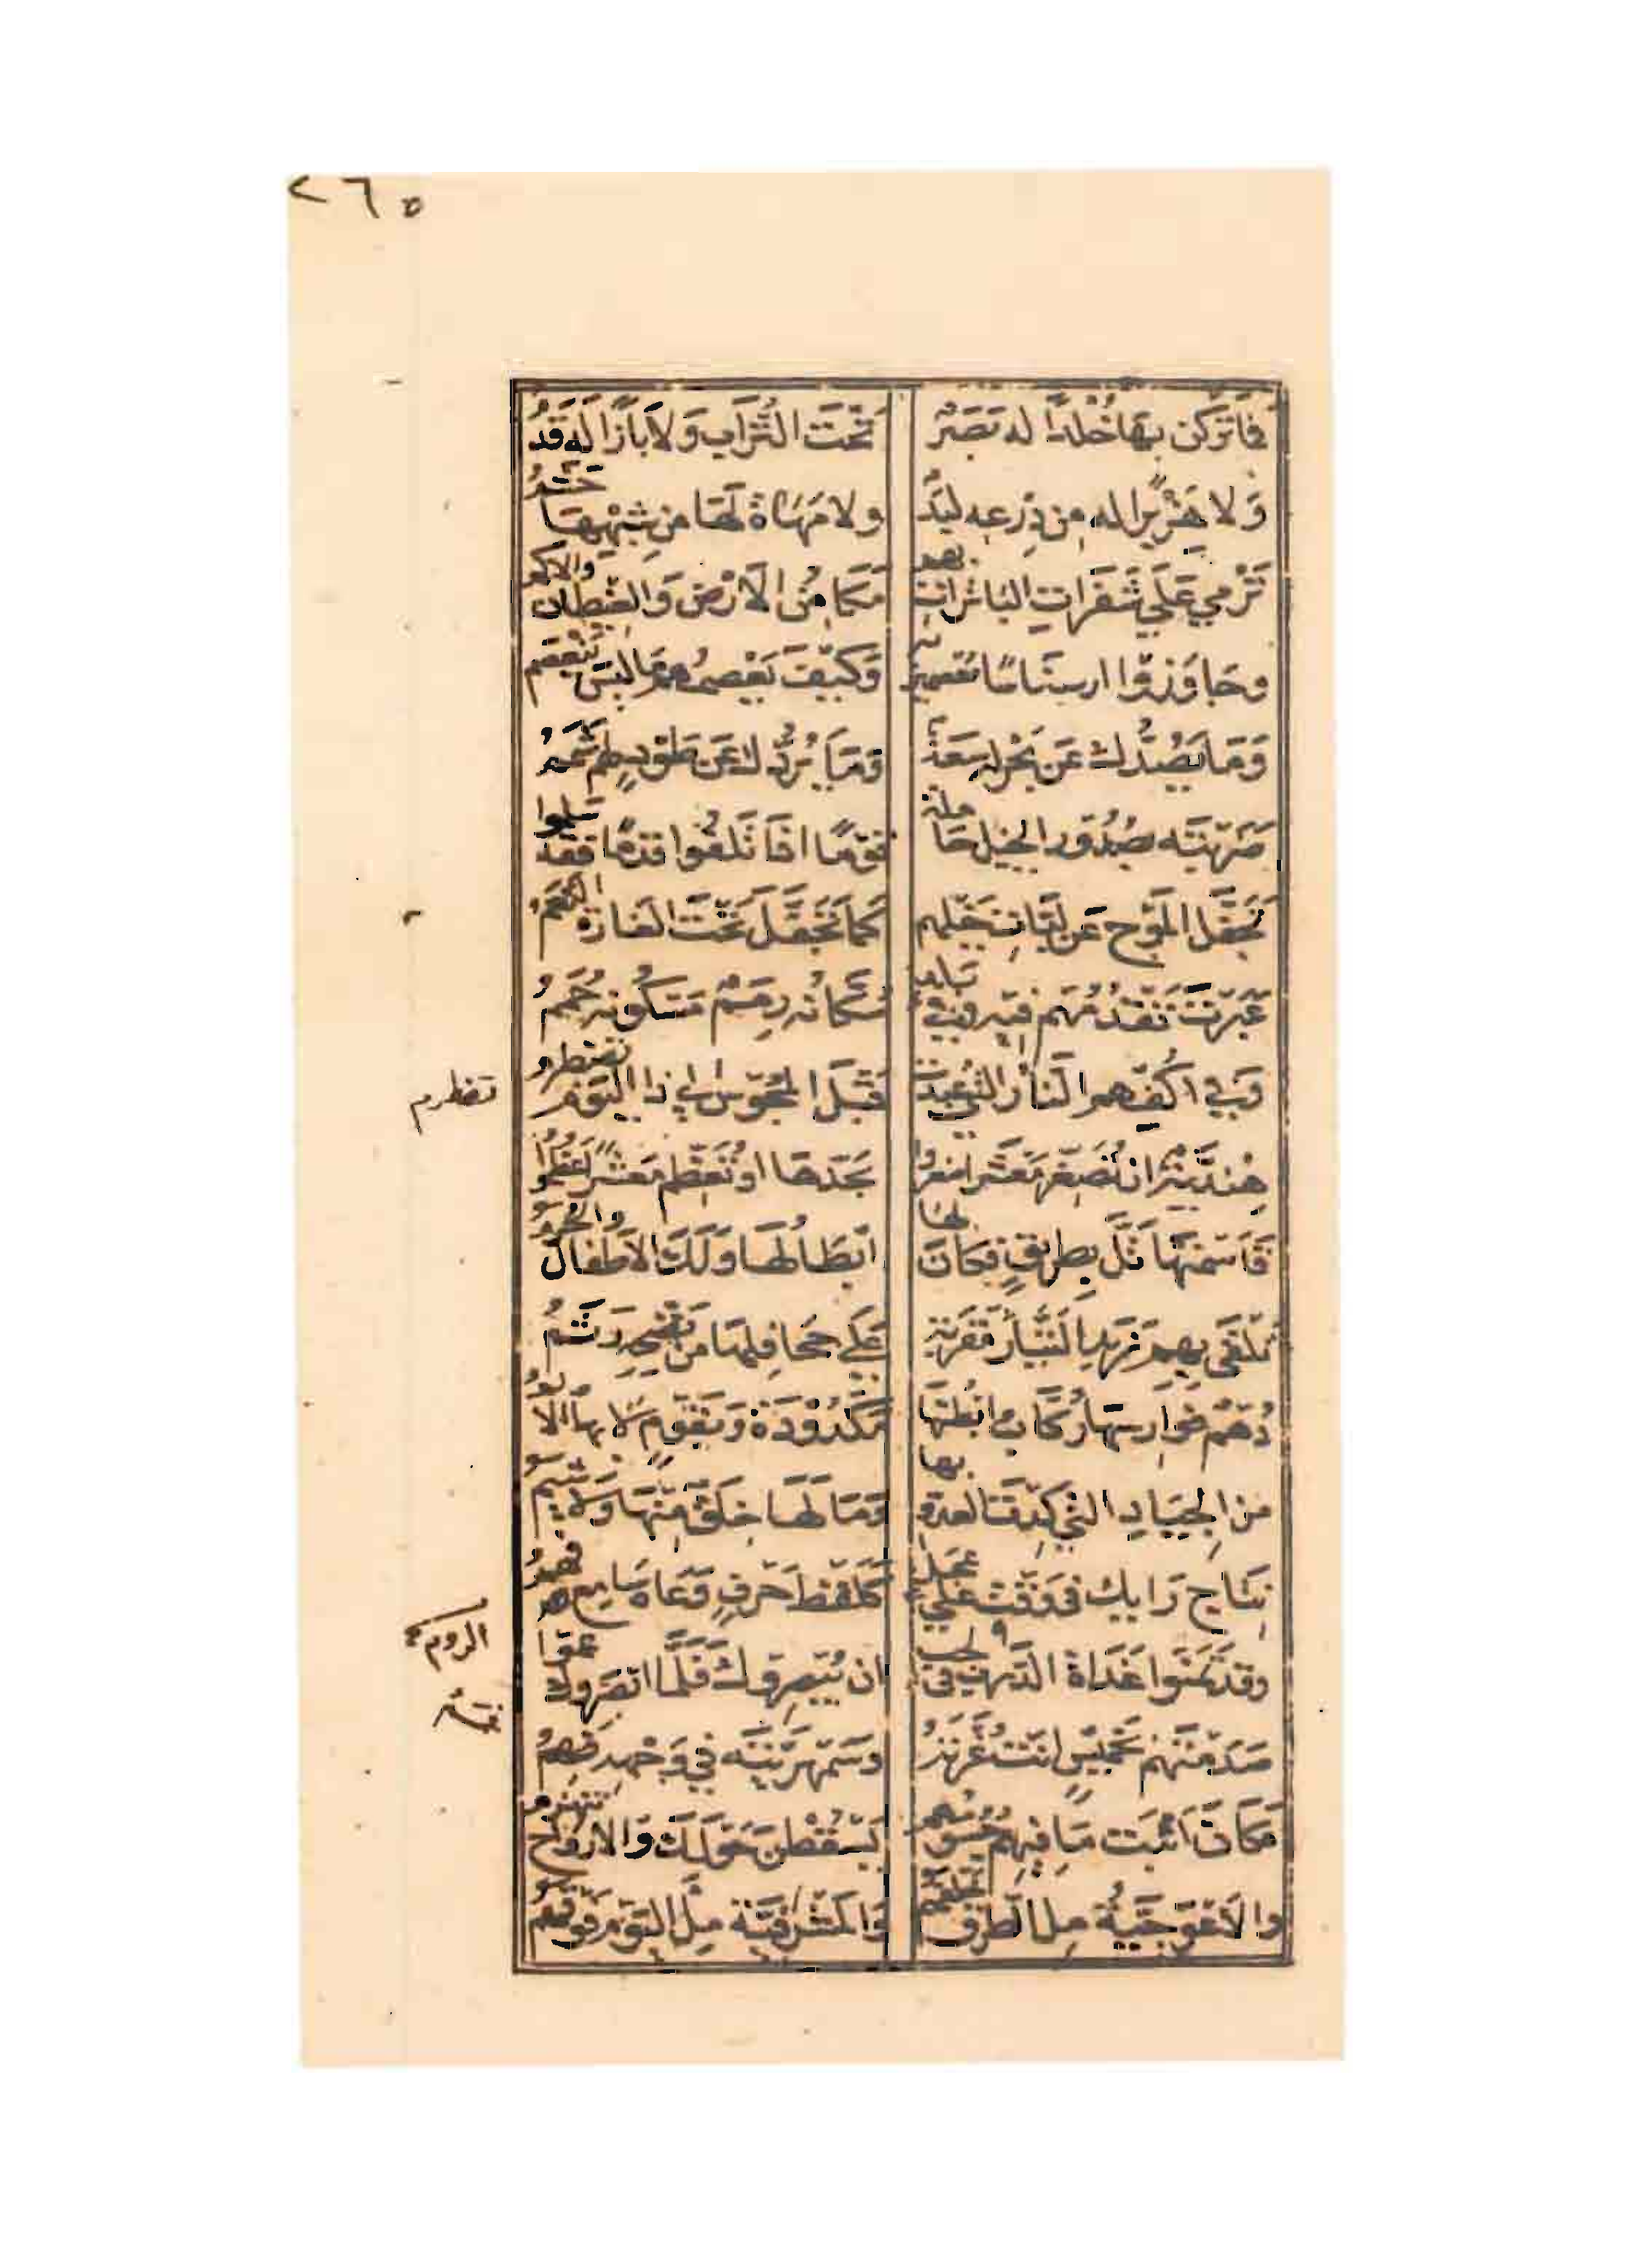 ٢٦٥
فما تركن بها خلدا له بصر تحت التراب ولا بازا له قدم
ولا هزبرا له من درعه لبد ولا مهاة لها من شبهها حشم
ترمي على شفرات الباترات بهم مكامن الارض والغيطان والاكم
وجاوزوا ارسناسا معصمين به وكيف يعصمهم ما ليس ينعصم
وما يصدك عن بحر له سعة وما يردك عن طود لهم شمم
ضربته بصدور الخيل حاملة قوما اذا تلفوا قدما فقد سلموا
تجفل الموج عن لبات خيلهم كما تجفل تحت الغارة النعم
عبرت تقدمهم فيه وفي بلد سكانه رمم مسكونه حمم
وفي اكفهم النار التي عبدت قبل المجوس الى ذا اليوم تضطرم
تضطرم
هندية ان تصغر معشرا صغروا بحدها او تعظم معشرا عظموا
قاسمتها تل بطريق فكان لها ابطالها ولك الاطفال والحرم
تلقى بهم زبد التيار مقربة على جحافلها من نضحه رثم
دهم فوارسها ركاب ابطنها مكدودة وبقوم لا بها الالم
من الجياد التي كدت العدو بها وما لها خلق منها ولا شيم
نتاج رايك في وقت على عجل كلفظ حرف وعاه سامع فهم
الروم
وقد تمنوا غداة الدرب في لجب ان يبصروك فلما ابصروك عموا
صدمتهم بخميس انت غرته وسمهريته في وجهه غمم
فكان اثبت ما فيهم جسومهم يسقطن حولك والارواح تنهزم
والاعوجية ملا الطرق خلفهم والمشرفية ملا اليوم فوقهم